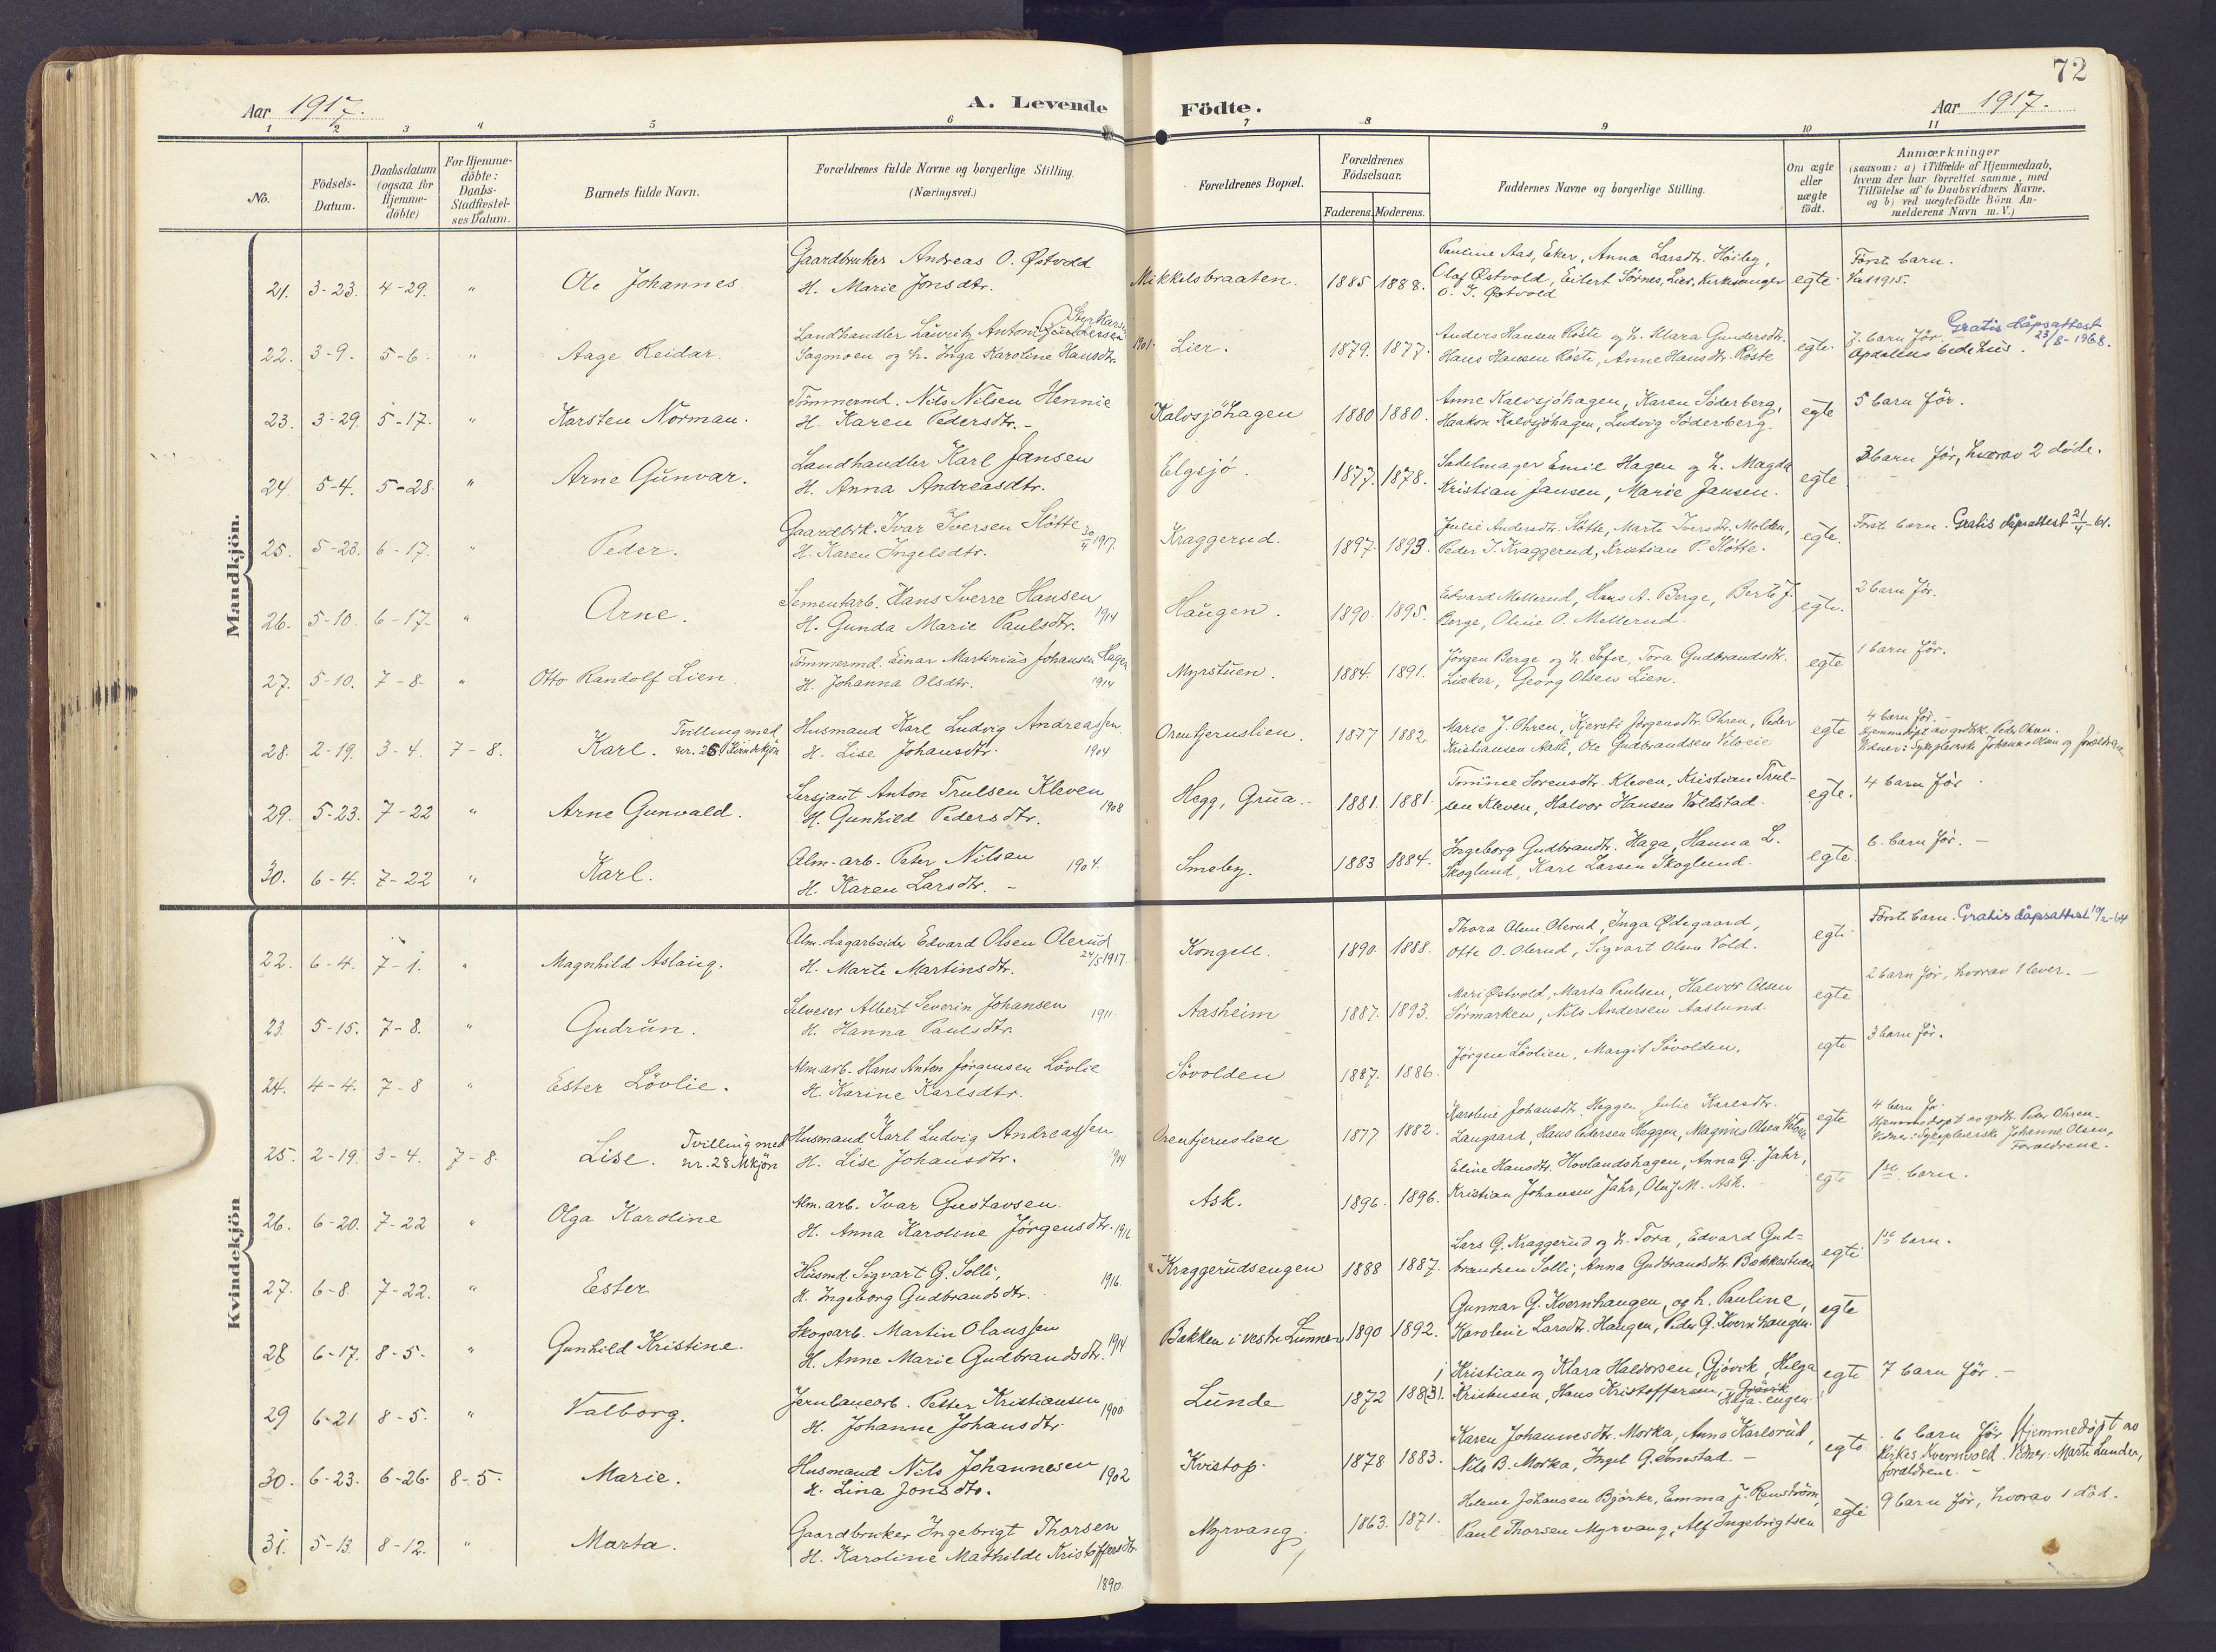 72
Aar 1917.
A. Levende Födte.
Aar 1917.
1 2 3 4 5 6 7 8 9 10 11
No.
Födsels-Datum.
Daabsdatum (ogsaa for Hjemme-döbte)
For Hjemme-döbte: Daabs-Stadfæstel-ses Datum.
Barnets fulde Navn.
Forældrenes fulde Navne og borgerlige Stilling. (Næringsvei.)
Forældrenes Bopæl.
Forældrenes Födselsaar.
Faderens. Moderens.
Faddernes Navne og borgerlige Stilling.
Om ægte eller uægte födt.
Anmærkninger
(saasom: a) i Tilfælde af Hjemmedaab,
hvem der har forrettet samme, med
Tilföielse af to Daabsvidners Navne.
og b) ved uægtefödte Börn An-
melderens Navn m. V.)
Mandkjön.
21. 3-23. 4-29. " Ole Johannes
Gaardbruker Andreas O. Østvold
H. Marie Jonsdtr.
Mikkelsbraaten. 1885 1888.
Pauline Aas, Eker, Anna Larsdtr. Höiby,
Olaf Østvold, Eilert Sörnes, Lier, Kirkesanger
O. J. Østvold
egte
Först barn.
Viet 1915.
22. 3-9. 5-6. " Aage Reidar.
Landhandler Lauritz Antoni
Sagmoen og h. Inga Karoline Hansdtr.
1901. Lier. 1879. 1877.
Anders Hansen Röste og h. Klara Gundersdtr.
Hans Hansen Röste, Anne Hansdtr. Röste
egte.
7. barn för. Gratis dåpsattest
Opdalens bedehus. 23/8-1968.
23. 3-29. 5-17. " Karsten Norman.
Tömmermd. Nils Nilsen Hennie
H. Karen Pedersdtr. -
Kalvsjöhagen 1880 1880.
Anne Kalvsjöhagen, Karen Söderberg,
Haakon Kalvsjöhagen, Ludvig Söderberg.
egte
5 barn för.
24. 5-4. 5-28. " Arne Gunvar.
Landhandler Karl Jansen
H. Anna Andreasdtr.
Elgsjö. 1877. 1878.
Sadelmager Emil Hagen og h. Magda
Kristian Jansen, Marie Jansen.
egte
3 barn för, hvorav 2 döde.
25. 5-23. 6-17. " Peder.
Gaardbrk. Ivar Iversen Slötte
H. Karen Ingelsdtr. 30/4 1917.
Kraggerud. 1897. 1893.
Julie Andersdtr. Slötte, Marte Iversdtr. Molden,
Peder I. Kraggerud, Kristian P. Slötte.
egte.
Först barn. Gratis dåpsattest 21/4-61.
26. 5-10. 6-17. " Arne.
Sementarb. Hans Sverre Hansen
H. Gunda Marie Paulsdtr. 1914
Haugen. 1890 1895.
Edvard Mellerud, Hans A. Berge, Berte J.
Berge, Oline O. Mellerud.
egte.
2 barn för.
27. 5-10. 7-8. " Otto Randolf Lien
Tömmermd. Einar Martinius Johansen Hagen
H. Johanna Olsdtr. 1914
Myrstuen. 1884. 1891.
Jörgen Berge og h. Sofie, Tora Gudbrandsdtr.
Lieker, Georg Olsen Lien.
egte
1 barn för.
28. 2-19. 3-4. 7-8. Karl. Tvilling med nr. 25 Kvindekjön
Husmand Karl Ludvig Andreassen
H. Lise Johansdtr. 1904
Orentjernslien. 1877 1882.
Marie J. Ohren, Kjersti Jörgensdtr. Ohren, Peder
Kristiansen Aasli, Ole Gudbrandsen Velovie
egte
4 barn för. -
Hjemmedöpt av grdbk. Peder Ohren.
Vidner: Sykepleierske Johanne Olsen og forældrene
29. 5-23. 7-22 " Arne Gunvald.
Sersjant Anton Trulsen Kleven
H. Gunhild Pedersdtr. 1908
Hegg, Grua. 1881. 1881.
Tomine Sorensdtr. Kleven, Kristian Trul-
sen Kleven, Halvor Hansen Voldstad.
egte.
4 barn för
30. 6-4. 7-22 " Karl.
Alm-arb. Peter Nilsen 1904.
H. Karen Larsdtr. -
Smeby. 1883 1884.
Ingeborg Gudbrandtr. Haga, Hanna L.
Skoglund, Karl Larsen Skoglund.
egte.
6. barn för. -
Kvindekjön
22. 6-4. 7-1. " Magnhild Aslaug.
Alm. dagarbeider Edvard Olsen Olerud
H. Marte Martinsdtr. 24/5 1917.
Kongell. 1890. 1888.
Thora Olsen Olerud, Inga Ødegaard,
Otto O. Olerud, Sigvart Olsen Vold.
egte
Först barn. Gratis dåpsattest 10/2-64
23. 5-15. 7-8. " Gudrun.
Albert Severin Johansen 1911
H. Hanna Paulsdtr.
Aasheim 1887. 1893.
Mari Østvold, Marta Paulsen, Halvor Olsen
Sörmarken, Nils Andersen Aaslund.
egte
2 barn för, hvorav 1 lever. -
24. 4-4. 7-8 " Ester Lövlie.
Alm-arb. Hans Anton Jörgensen Lövlie
H. Karine Karlsdtr.
Sövolden 1887. 1886.
Jörgen Lövlien, Margit Sövolden.
egte
3 barn för.
25. 2-19. 3-4. 7-8. Lise. Tvilling med nr. 28 Mkjön
Husmand Karl Ludvig Andreassen
H. Lise Johansdtr. 1904
Orentjernslien 1877 1882.
Karoline Johansdtr. Heggen, Julie Karlsdtr.
Langaard, Hans Edersen Heggen, Magnus Olsen Velovie
egte
4 barn för
Hjemmedöpt av grdbr. Peder Ohren.
Vidner: Sykepleierske Johanne Olsen,
Foraldrene.
26. 6-20. 7-22 " Olga Karoline
Alm. arb. Ivar Gustavsen.
H. Anna Karoline Jörgensdtr. 1916
Ask. 1896. 1896.
Eline Hansdtr. Hovlandshagen, Anna G. Jahr,
Kristian Johansen Jahr, Oluf M. Ask. -
egte
1ste barn.
27. 6-8. 7-22. " Ester
Husmd Sigvart G. Solli,
H. Ingeborg Gudbrandsdtr. 1916.
Kraggerudsengen 1888 1887.
Lars G. Kraggerud og h. Tora, Edvard Gud=
brandsen Solli, Anna Gudbrandsdtr. Bakkestuen
egte
1ste barn.
28 6-17. 8-5. " Gunhild Kristine.
Skogsarb. Martin Olaussen
H. Anne Marie Gudbrandsdtr. 1914
Bakken i vestre Lunner 1890 1892.
Gunnar G. Kvernhaugen, og h. Pauline,
Karoline Larsdtr. Haugen, Peder G. Kvernhaugen.
egte
29 6-21 8-5. " Valborg.
Jernbanearb. Petter Kristiansen 1900
H. Johanne Johansdtr.
Lunde 1872 1883.
Kristian og Klara Haldorsen, Gjövik, Helga
Kristiansen, Hans Kristoffersen, Gjövik Haga-engen
egte
7 barn för. -
30. 6-23. 6-26. 8-5. Marie.
Husmand Nils Johannesen 1902
H. Lina Jonsdtr.
Kvistop. 1878 1883.
Karen Johannesdtr. Morka, Anna Karlsrud,
Nils B. Morka, Ingel G. Elmstad. -
egte
6 barn för Hjemmedöpt av
Kvernvold. Vidner: Marte Lunder,
foraldrene. -
31. 5-13. 8-12. " Marta.
Gaardbruker Ingebrigt Thorsen
H. Karoline Mathilde Kristoffersdtr.
1890.
Myrvang. 1863. 1871.
Helene Johansen Björke, Emma J. Renström,
Paul Thorsen Myrvang, Alf Ingebrigtsen
egte
9 barn för, hvorav 1 död.